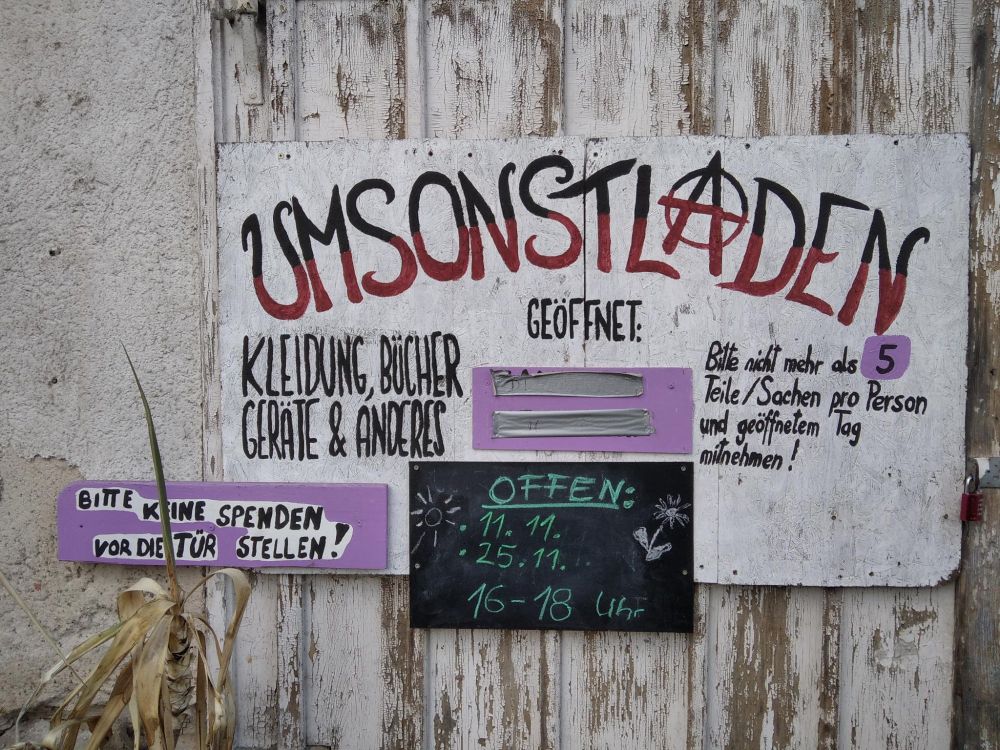 UMSONSTLADEN
GEÖFFNET:
KLEIDUNG, BÜCHER
GERÄTE & ANDERES
Bitte nicht mehr als 5
Teile/Sachen pro Person
und geöffnetem Tag
mitnehmen!
BITTE KEINE SPENDEN
VOR DIE TÜR STELLEN!
OFFEN:
• 11. 11.
• 25. 11.
16-18 Uhr